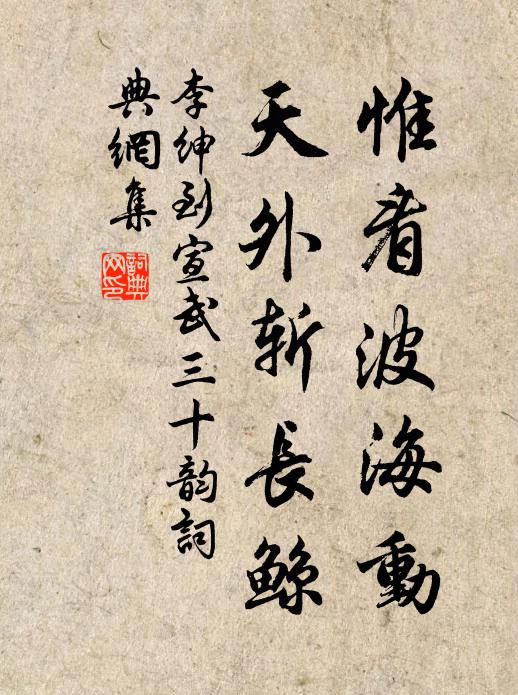 惟看波海動
天外斬長鯨
李紳到宣武三十韵詞
典網集
詞典網印